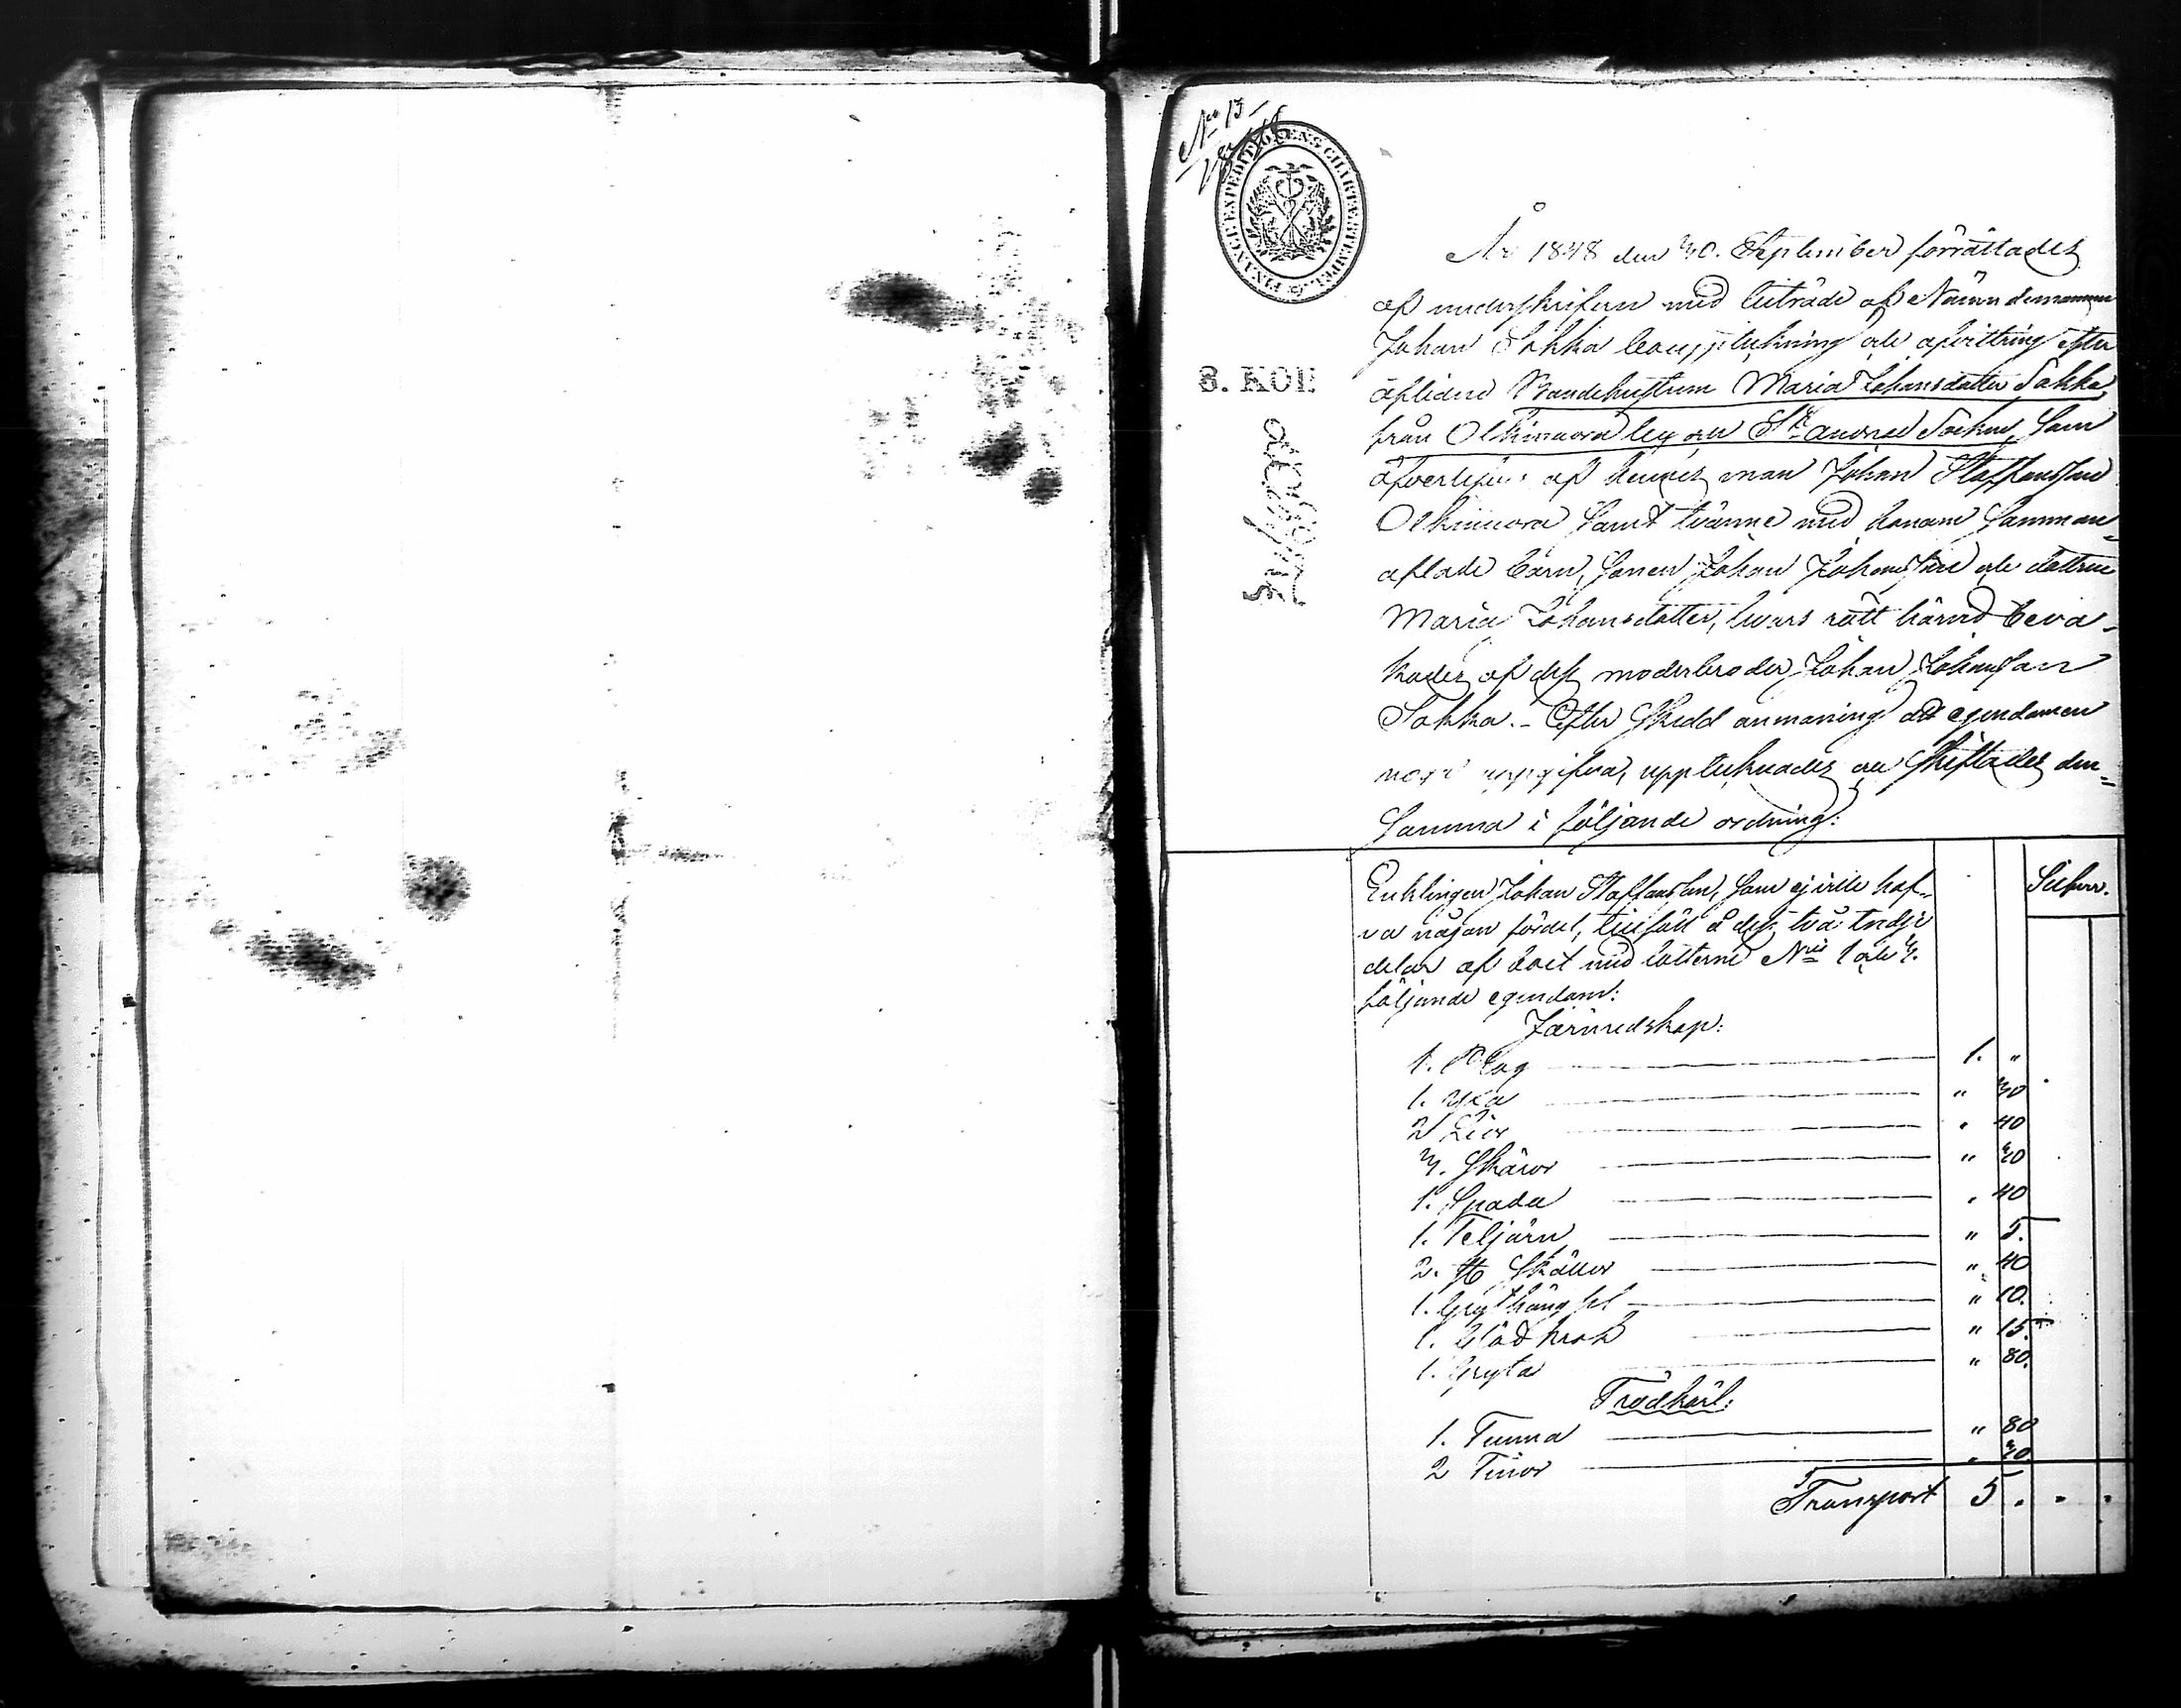 No 13
1848
FINANCE EXPEDITIONENS CHARTÆ STEMPEL
8. KOP.
År 1848 den 30. September förrättades
af underskrifven med biträde af Nämndemannen
Johan Sakka bouppteckning och afvittring efter
aflidne Bondehustrun Maria Johansdotter Sakka
från Olkinuora by och St. Andreæ Socken, som
öfverlefves af hennes man Johan Staffansson
Olkinuora samt tvänne med honom samman-
aflade barn, sonen Johan Johansson och dottren
Maria Johansdotter, hvars rätt härvid beva-
kades af dess moderbroder Johan Johansson
Sakka. - Efter skedd anmaning att egendomen
noga uppgifva, upptecknades och skiftades den-
samma i följande ordning:
Silfver.
Enklingen Johan Staffansson, som ej ville haf-
va någon fördel, tillföll å dess två tredje
delar af boet med lotterne Nris 1 och 3.
följande egendom:
Järnredskap:
1. Plog 1. "
1. Yxa " 30
2 Liar " 40
3. Skäror " 30
1. Spada " 40
1. Teljärn " 5.
2. st Skällor " 40
1. Grythängsel " 10.
1. Glödkrok " 15.
1. Gryta " 80.
Trädkäril:
1. Tunna " 80
2 Tinor " 30
Transport 5 . . .